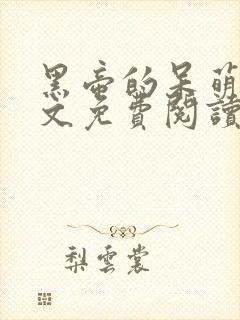 黑帝的呆萌
文免費閱讀
梨雲裳